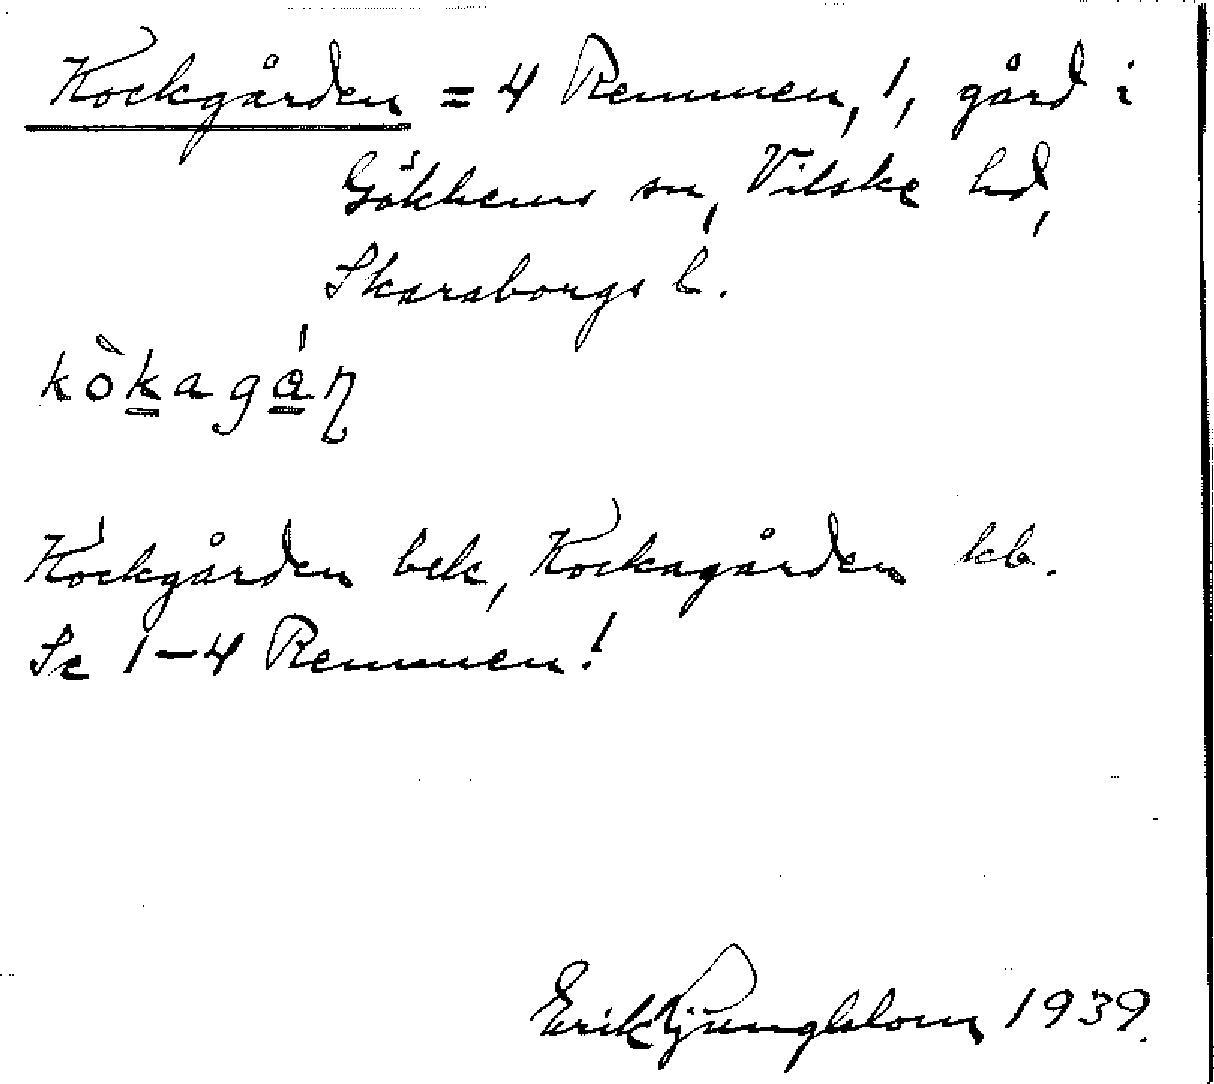 Kockgården = 4 Remmen, 1, gård i
Gökhems sn, Vilske hd,
Skaraborgs l.
kòkagán
Kockgården bek, Kockagården kb.
Se 1–4 Remmen!
Erik Ljungblom 1939.